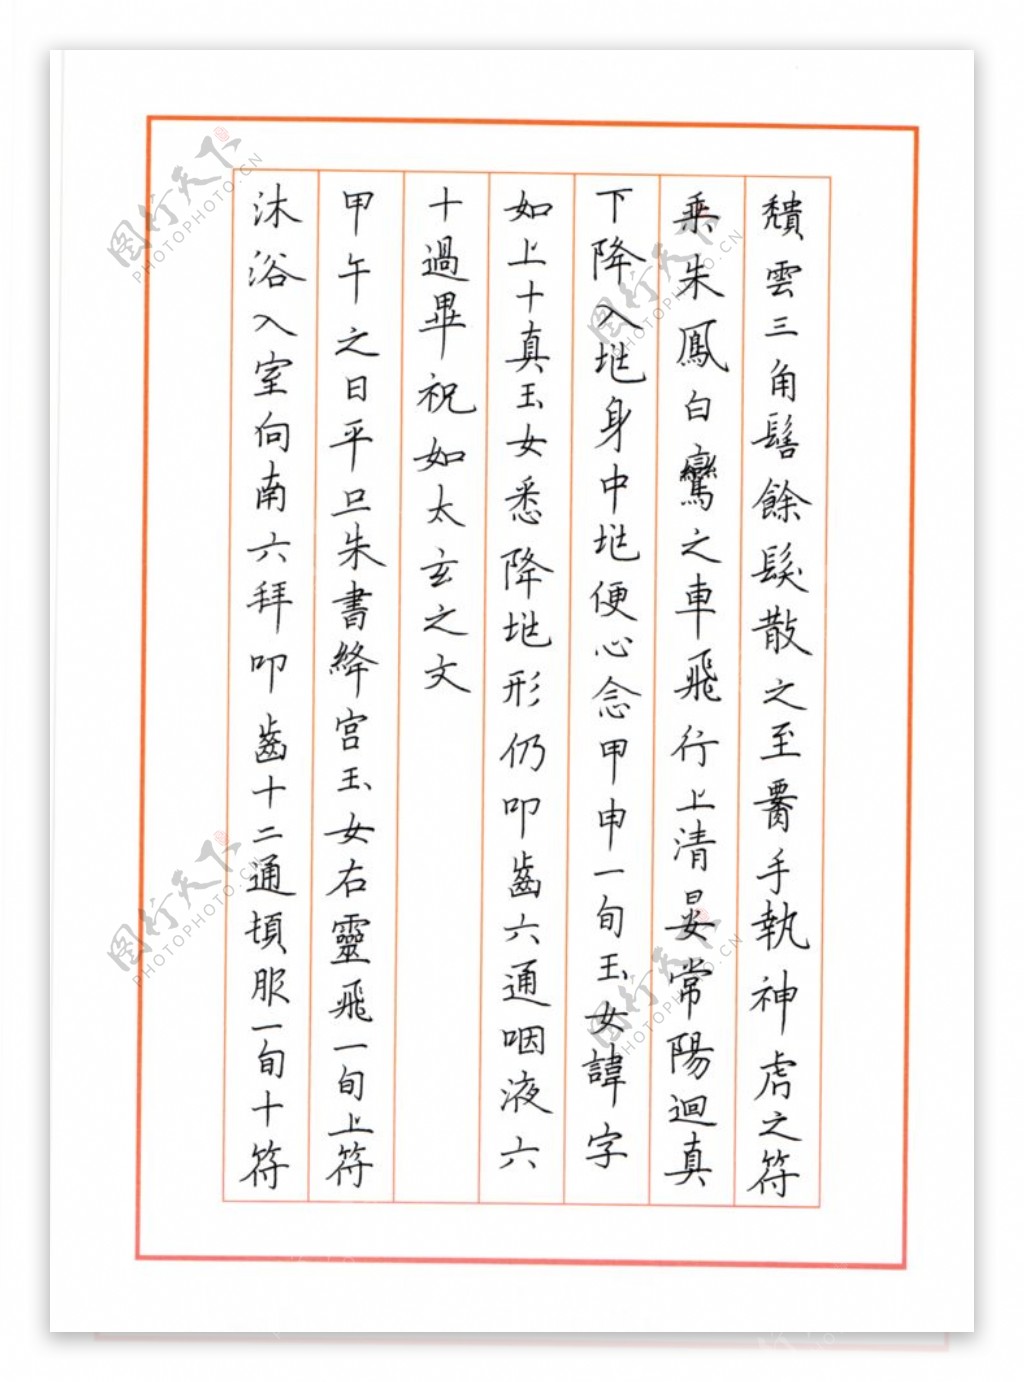 穨雲三角髻餘髮散之至腰手執神虎之符
乘朱鳳白鸞之車飛行上清晏常陽迴真
下降入兆身中兆便心念甲申一旬玉女諱字
如上十真玉女悉降兆形仍叩齒六通咽液六
十過畢祝如太玄之文
甲午之日平旦朱書絳宮玉女右靈飛一旬上符
沐浴入室向南六拜叩齒十二通頓服一旬十符
图行天下
PHOTOPHOTO.CN
图行天下
PHOTOPHOTO.CN
图行天下
PHOTOPHOTO.CN
图行天下
PHOTOPHOTO.CN